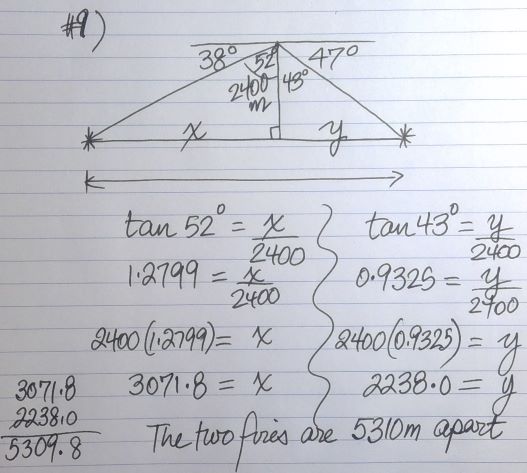 #9)
38° 52° 47°
2400 m 43°
x y
tan 52° = x/2400
1.2799 = x/2400
2400(1.2799) = x
3071.8 = x
tan 43° = y/2400
0.9325 = y/2400
2400(0.9325) = y
2238.0 = y
3071.8
2238.0
5309.8
The two fires are 5310m apart